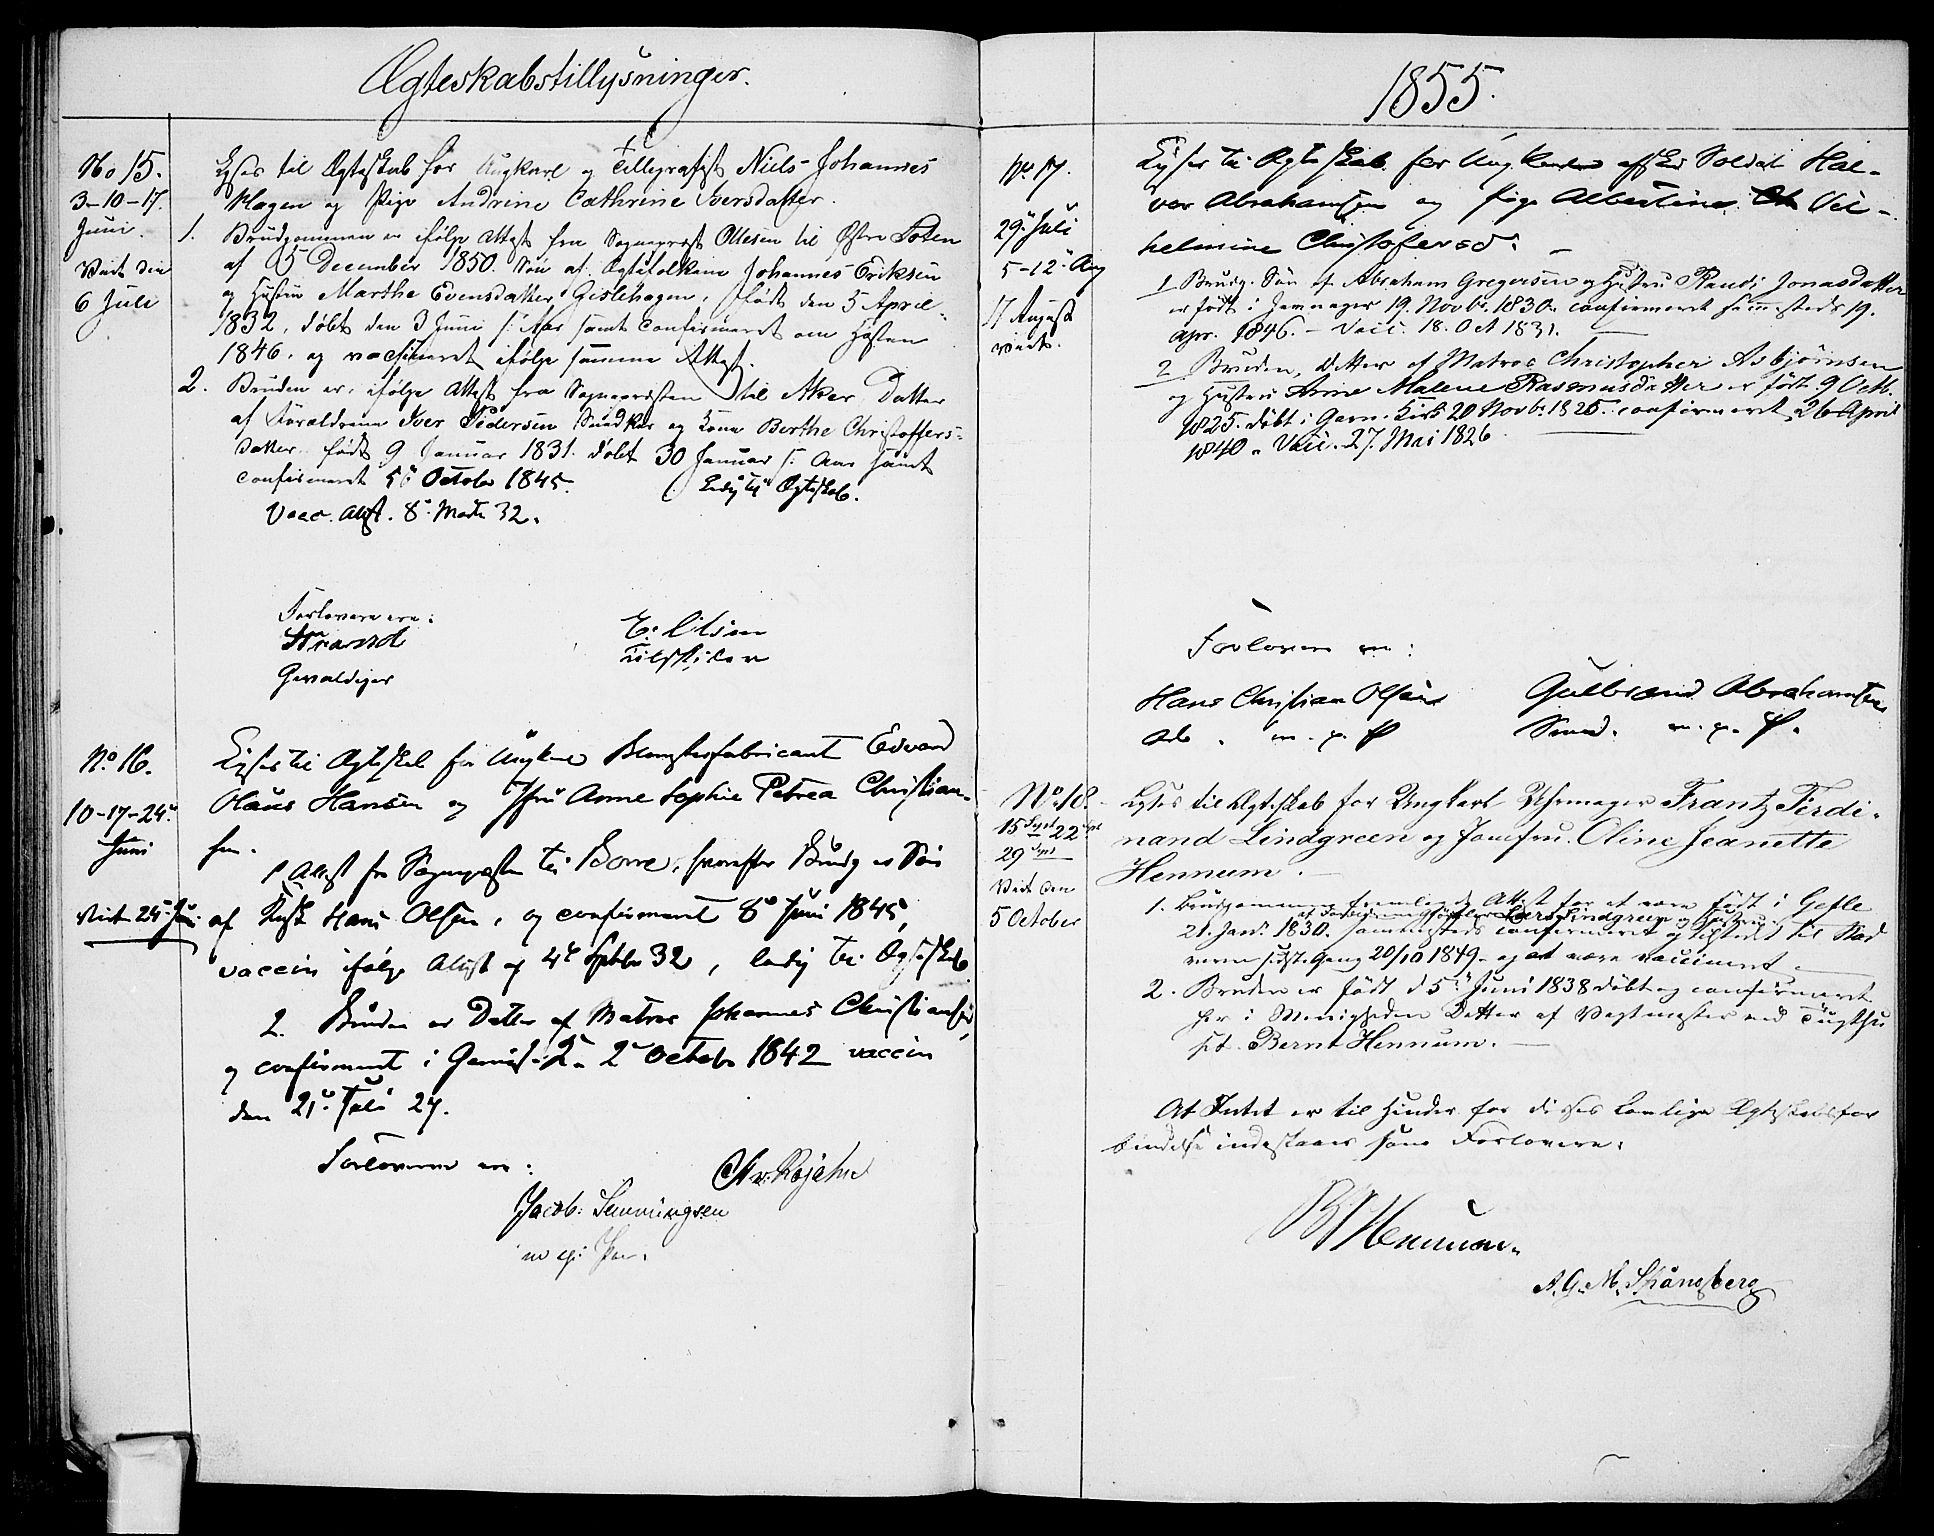 Ægteskabstillysninger.
No 15.
3-10-17.
Juni.
Viet den
6 Juli
Lyses til Ægteskab for Ungkarl og Tellegrafist Niels Johannes
Hagen og Pige Andrine Cathrine Iversdatter.
1. Brudgommen er ifølge Attest fra Sognepræst Ottesen til Østre Toten
af 5 December 1850. Søn af Ægtefolkene Johannes Eriksen
og Hustru Marthe Evensdatter Gislehagen, født den 5 April
1832, døbt den 3 Juni s. Aar samt confirmeret om Høsten
1846. og vacsineret ifølge samme Attest.
2. Bruden er, ifølge Attest fra Sognepræsten til Aker Datter
af Forældrene Iver Pedersen Snedker og Kone Berthe Christoffers-
datter født 9 Januar 1831. døbt 30 Januar s. Aar samt
confirmeret 5te October 1845. Ledig til Ægteskab.
Vacc. Attst. 8 Marts 32.
Forlovere ere:
Strand
Gevaldiger
E. Olsen
No. 16.
10-17-24
Juni
Viet 24 Juni
Lyses til Ægteskab for Ungkarl Blomsterfabricant Edvard
Olaus Hansen og Jfru Anne Sophie Petrea Christian-
sen.
1 Attest fra Sognepræsten til Borre, hvorefter Brudg er Søn
af Kudsk Hans Olsen, og confirmeret 8 Juni 1845,
vaccin ifølge Attest af 4de Septbr 32, ledig til Ægteskab
2. Bruden er Datter af Matros Johannes Christiansen,
og confirmeret i Garnis. K. 2 October 1842 vaccin
den 21 Juli 27.
Forloverne ere:
Jacob: Semmingsen
1855.
No 17.
29 Juli
5-12 Aug
17 August
viet.
Lyses til Ægteskab for Ungkarl afsked Soldat Hal-
vor Abrahamsen og Pige Albertine Vil-
helmine Christofersd:
1 Brudg. Søn af Abraham Gregersen og Hustru Randi Jonasdatter
er født i Jevnager 19. Novbr. 1830. confirmeret sammesteds 19.
apr. 1846. - Vacc. 18. Oct 1831. -
2 Bruden, Datter af Matros Christopher Asbjørnsen
og Hustru Anne Malene Rasmusdatter er født 9 Octb.
1825. døbt i Garn. Kirk 20 Novb: 1825. confirmeret 26 April
1840. Vacc. 27. Mai 1826
Forlovere ere:
Hans Christian Olsen
m. p. P
Gulbrand Abrahamsen
Smed. m. p. P.
No. 18.
15 Sept 22 Spt
29 Sept
Viet den
5 October
Lyses til Ægteskab for Ungkarl Uhrmager Frantz Ferdi-
nand Lindgreen og Jomfru. Oline Jeanette
Hennum. -
1. Brudgommen fremlagde Attest for at være født i Gefle
af Forældrene Lars Lindgreen og Hustru
21. Jan. 1830. sammesteds confirmeret og tilstedet til Nad
veren sidste Gang 20/10 1849 og at være vaccineret
2. Bruden er født d 5te Juni 1838 døbt og confirmeret
her i Menigheden Datter af Vagtmester ved Tugthu
set. Bernt Hennum. -
At Intet er til Hinder for disses lovlige Ægteskabsfor
bindelse indestaaes som Forlovere:
B Hennum.
A. G. M. Skånsberg